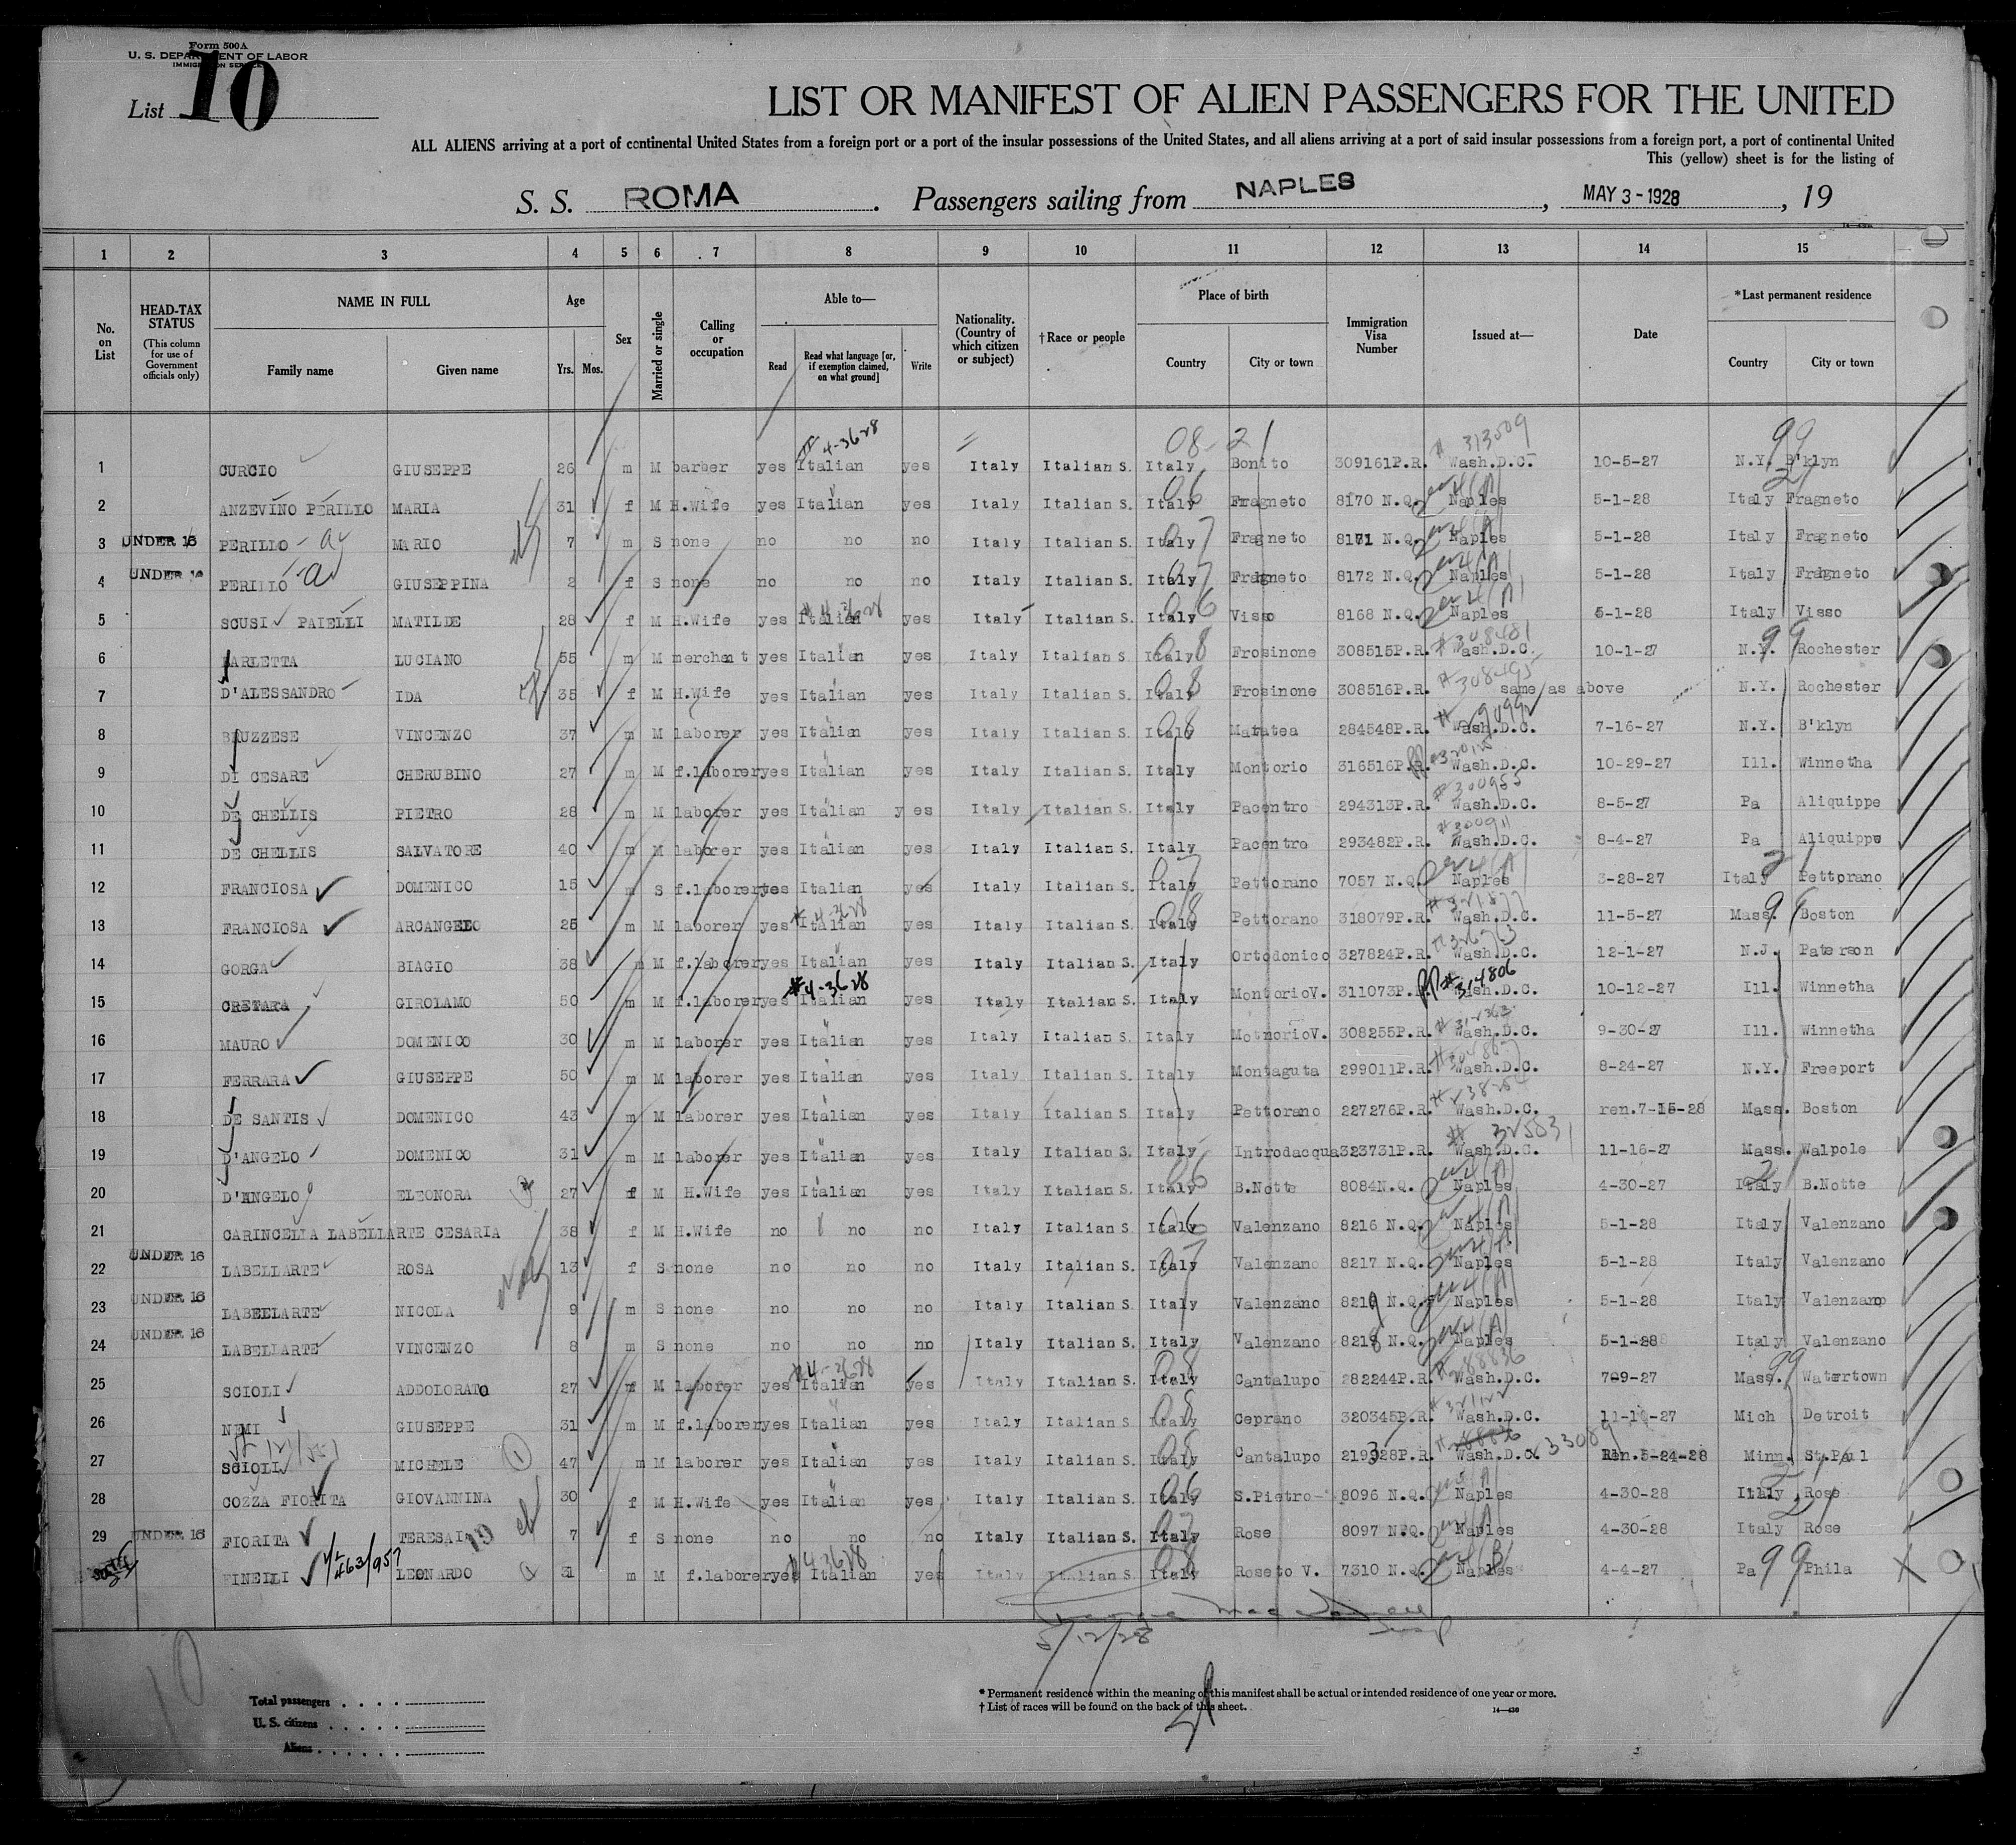 Form 500A
U. S. DEPARTMENT OF LABOR
IMMIGRATION SERVICE
List 10
LIST OR MANIFEST OF ALIEN PASSENGERS FOR THE UNITED
ALL ALIENS arriving at a port of continental United States from a foreign port or a port of the insular possessions of the United States, and all aliens arriving at a port of said insular possessions from a foreign port, a port of continental United
This (yellow) sheet is for the listing of
S. S. ROMA. Passengers sailing from NAPLES, MAY 3-1928, 19
1 2 3 4 5 6 7 8 9 10 11 12 13 14 15
No. on List
HEAD-TAX STATUS (This column for use of Government officials only)
NAME IN FULL Family name Given name
Age Yrs. Mos.
Sex
Married or single
Calling or occupation
Able to— Read Read what language [or, if exemption claimed, on what ground] Write
Nationality. (Country of which citizen or subject)
†Race or people
Place of birth Country City or town
Immigration Visa Number
Issued at—
Date
*Last permanent residence Country City or town
1 CURCIO GIUSEPPE 26 m M barber yes Italian yes Italy Italian S. Italy Bonito 309161P.R. Wash.D.C. 10-5-27 N.Y. B'klyn
2 ANZEVINO PERILLO MARIA 31 f M H.Wife yes Italian yes Italy Italian S. Italy Fragneto 8170 N.Q. Naples 5-1-28 Italy Fragneto
3 UNDER 16 PERILLO MARIO 7 m S none no no no Italy Italian S. Italy Fragneto 8171 N.Q. Naples 5-1-28 Italy Fragneto
4 UNDER 16 PERILLO GIUSEPPINA 2 f S none no no no Italy Italian S. Italy Fragneto 8172 N.Q. Naples 5-1-28 Italy Fragneto
5 SCUSI PAIELLI MATILDE 28 f M H.Wife yes Italian yes Italy Italian S. Italy Visso 8168 N.Q. Naples 5-1-28 Italy Visso
6 BARLETTA LUCIANO 55 m M merchant yes Italian yes Italy Italian S. Italy Frosinone 308515P.R. Wash.D.C. 10-1-27 N.Y. Rochester
7 D'ALESSANDRO IDA 35 f M H.Wife yes Italian yes Italy Italian S. Italy Frosinone 308516P.R. same as above N.Y. Rochester
8 BRUZZESE VINCENZO 37 m M laborer yes Italian yes Italy Italian S. Italy Maratea 284548P.R. Wash.D.C. 7-16-27 N.Y. B'klyn
9 DI CESARE CHERUBINO 27 m M f.laborer yes Italian yes Italy Italian S. Italy Montorio 316516P.R. Wash.D.C. 10-29-27 Ill. Winnetha
10 DE CHELLIS PIETRO 28 m M laborer yes Italian yes Italy Italian S. Italy Pacentro 294313P.R. Wash.D.C. 8-5-27 Pa Aliquippe
11 DE CHELLIS SALVATORE 40 m M laborer yes Italian yes Italy Italian S. Italy Pacentro 293482P.R. Wash.D.C. 8-4-27 Pa Aliquippe
12 FRANCIOSA DOMENICO 15 m S f.laborer yes Italian yes Italy Italian S. Italy Pettorano 7057 N.Q. Naples 3-28-27 Italy Pettorano
13 FRANCIOSA ARCANGELO 25 m M laborer yes Italian yes Italy Italian S. Italy Pettorano 318079P.R. Wash.D.C. 11-5-27 Mass. Boston
14 GORGA BIAGIO 38 m M f.laborer yes Italian yes Italy Italian S. Italy Ortodonico 327824P.R. Wash.D.C. 12-1-27 N.J. Paterson
15 CRETARA GIROLAMO 50 m M f.laborer yes Italian yes Italy Italian S. Italy MontorioV. 311073P.R. Wash.D.C. 10-12-27 Ill. Winnetha
16 MAURO DOMENICO 30 m M laborer yes Italian yes Italy Italian S. Italy MotnorioV. 308255P.R. Wash.D.C. 9-30-27 Ill. Winnetha
17 FERRARA GIUSEPPE 50 m M laborer yes Italian yes Italy Italian S. Italy Montaguta 299011P.R. Wash.D.C. 8-24-27 N.Y. Freeport
18 DE SANTIS DOMENICO 43 m M laborer yes Italian yes Italy Italian S. Italy Pettorano 227276P.R. Wash.D.C. ren.7-15-28 Mass. Boston
19 D'ANGELO DOMENICO 31 m M laborer yes Italian yes Italy Italian S. Italy Introdacqua 323731P.R. Wash.D.C. 11-16-27 Mass. Walpole
20 D'ANGELO ELEONORA 27 f M H.Wife yes Italian yes Italy Italian S. Italy B.Notte 8084N.Q. Naples 4-30-27 Italy B.Notte
21 CARINCELIA LABELLARTE CESARIA 38 f M H.Wife no no no Italy Italian S. Italy Valenzano 8216 N.Q. Naples 5-1-28 Italy Valenzano
22 UNDER 16 LABELLARTE ROSA 13 f S none no no no Italy Italian S. Italy Valenzano 8217 N.Q. Naples 5-1-28 Italy Valenzano
23 UNDER 16 LABELLARTE NICOLA 9 m S none no no no Italy Italian S. Italy Valenzano 8219 N.Q. Naples 5-1-28 Italy Valenzano
24 UNDER 16 LABELLARTE VINCENZO 8 m S none no no no Italy Italian S. Italy Valenzano 8218 N.Q. Naples 5-1-28 Italy Valenzano
25 SCIOLI ADDOLORATO 27 m M laborer yes Italian yes Italy Italian S. Italy Cantalupo 282244P.R. Wash.D.C. 709-27 Mass. Watertown
26 NEMI GIUSEPPE 31 m M f.laborer yes Italian yes Italy Italian S. Italy Ceprano 320345P.R. Wash.D.C. 11-10-27 Mich Detroit
27 SCIOLI MICHELE 47 m M laborer yes Italian yes Italy Italian S. Italy Cantalupo 219328P.R. Wash.D.C. Ren.5-24-28 Minn. St.Paul
28 COZZA FIORITA GIOVANNINA 30 f M H.Wife yes Italian yes Italy Italian S. Italy S.Pietro- 8096 N.Q. Naples 4-30-28 Italy Rose
29 UNDER 16 FIORITA TERESA 7 f S none no no no Italy Italian S. Italy Rose 8097 N.Q. Naples 4-30-28 Italy Rose
FINELLI LEONARDO 31 m M f.laborer yes Italian yes Italy Italian S. Italy Roseto V. 7310 N.Q. Naples 4-4-27 Pa Phila
5/12/28
10
Total passengers . . . .
U. S. citizens . . . . .
Aliens . . . . . .
* Permanent residence within the meaning of this manifest shall be actual or intended residence of one year or more.
† List of races will be found on the back of this sheet.
14—430